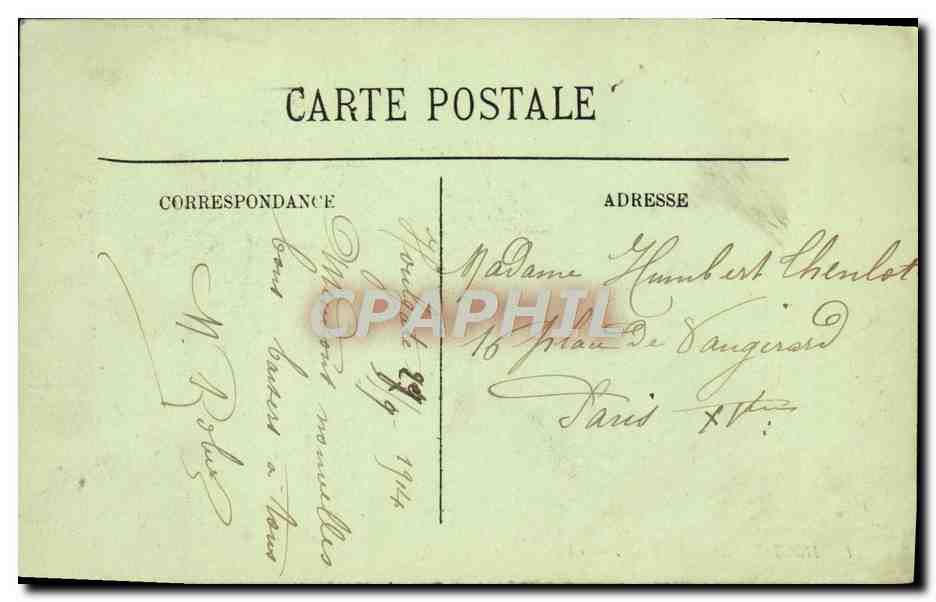 CARTE POSTALE
CORRESPONDANCE
ADRESSE
Houlgate 29/9-1914
nouvelles
bons baisers à tous
M.
Madame Humbert Chenlot
16 place de Vaugirard
Paris
CPAPHIL